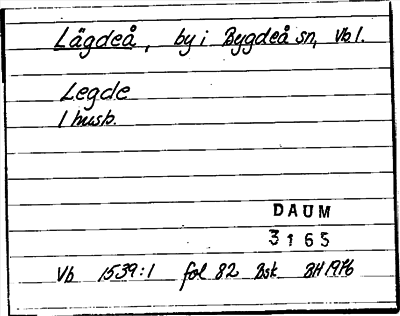 Lägdeå, by i Bygdeå sn, Vbl.
Legde
1 husb.
DAUM
3165
Vb 1539:1 fol 82 Bsk BH 1976